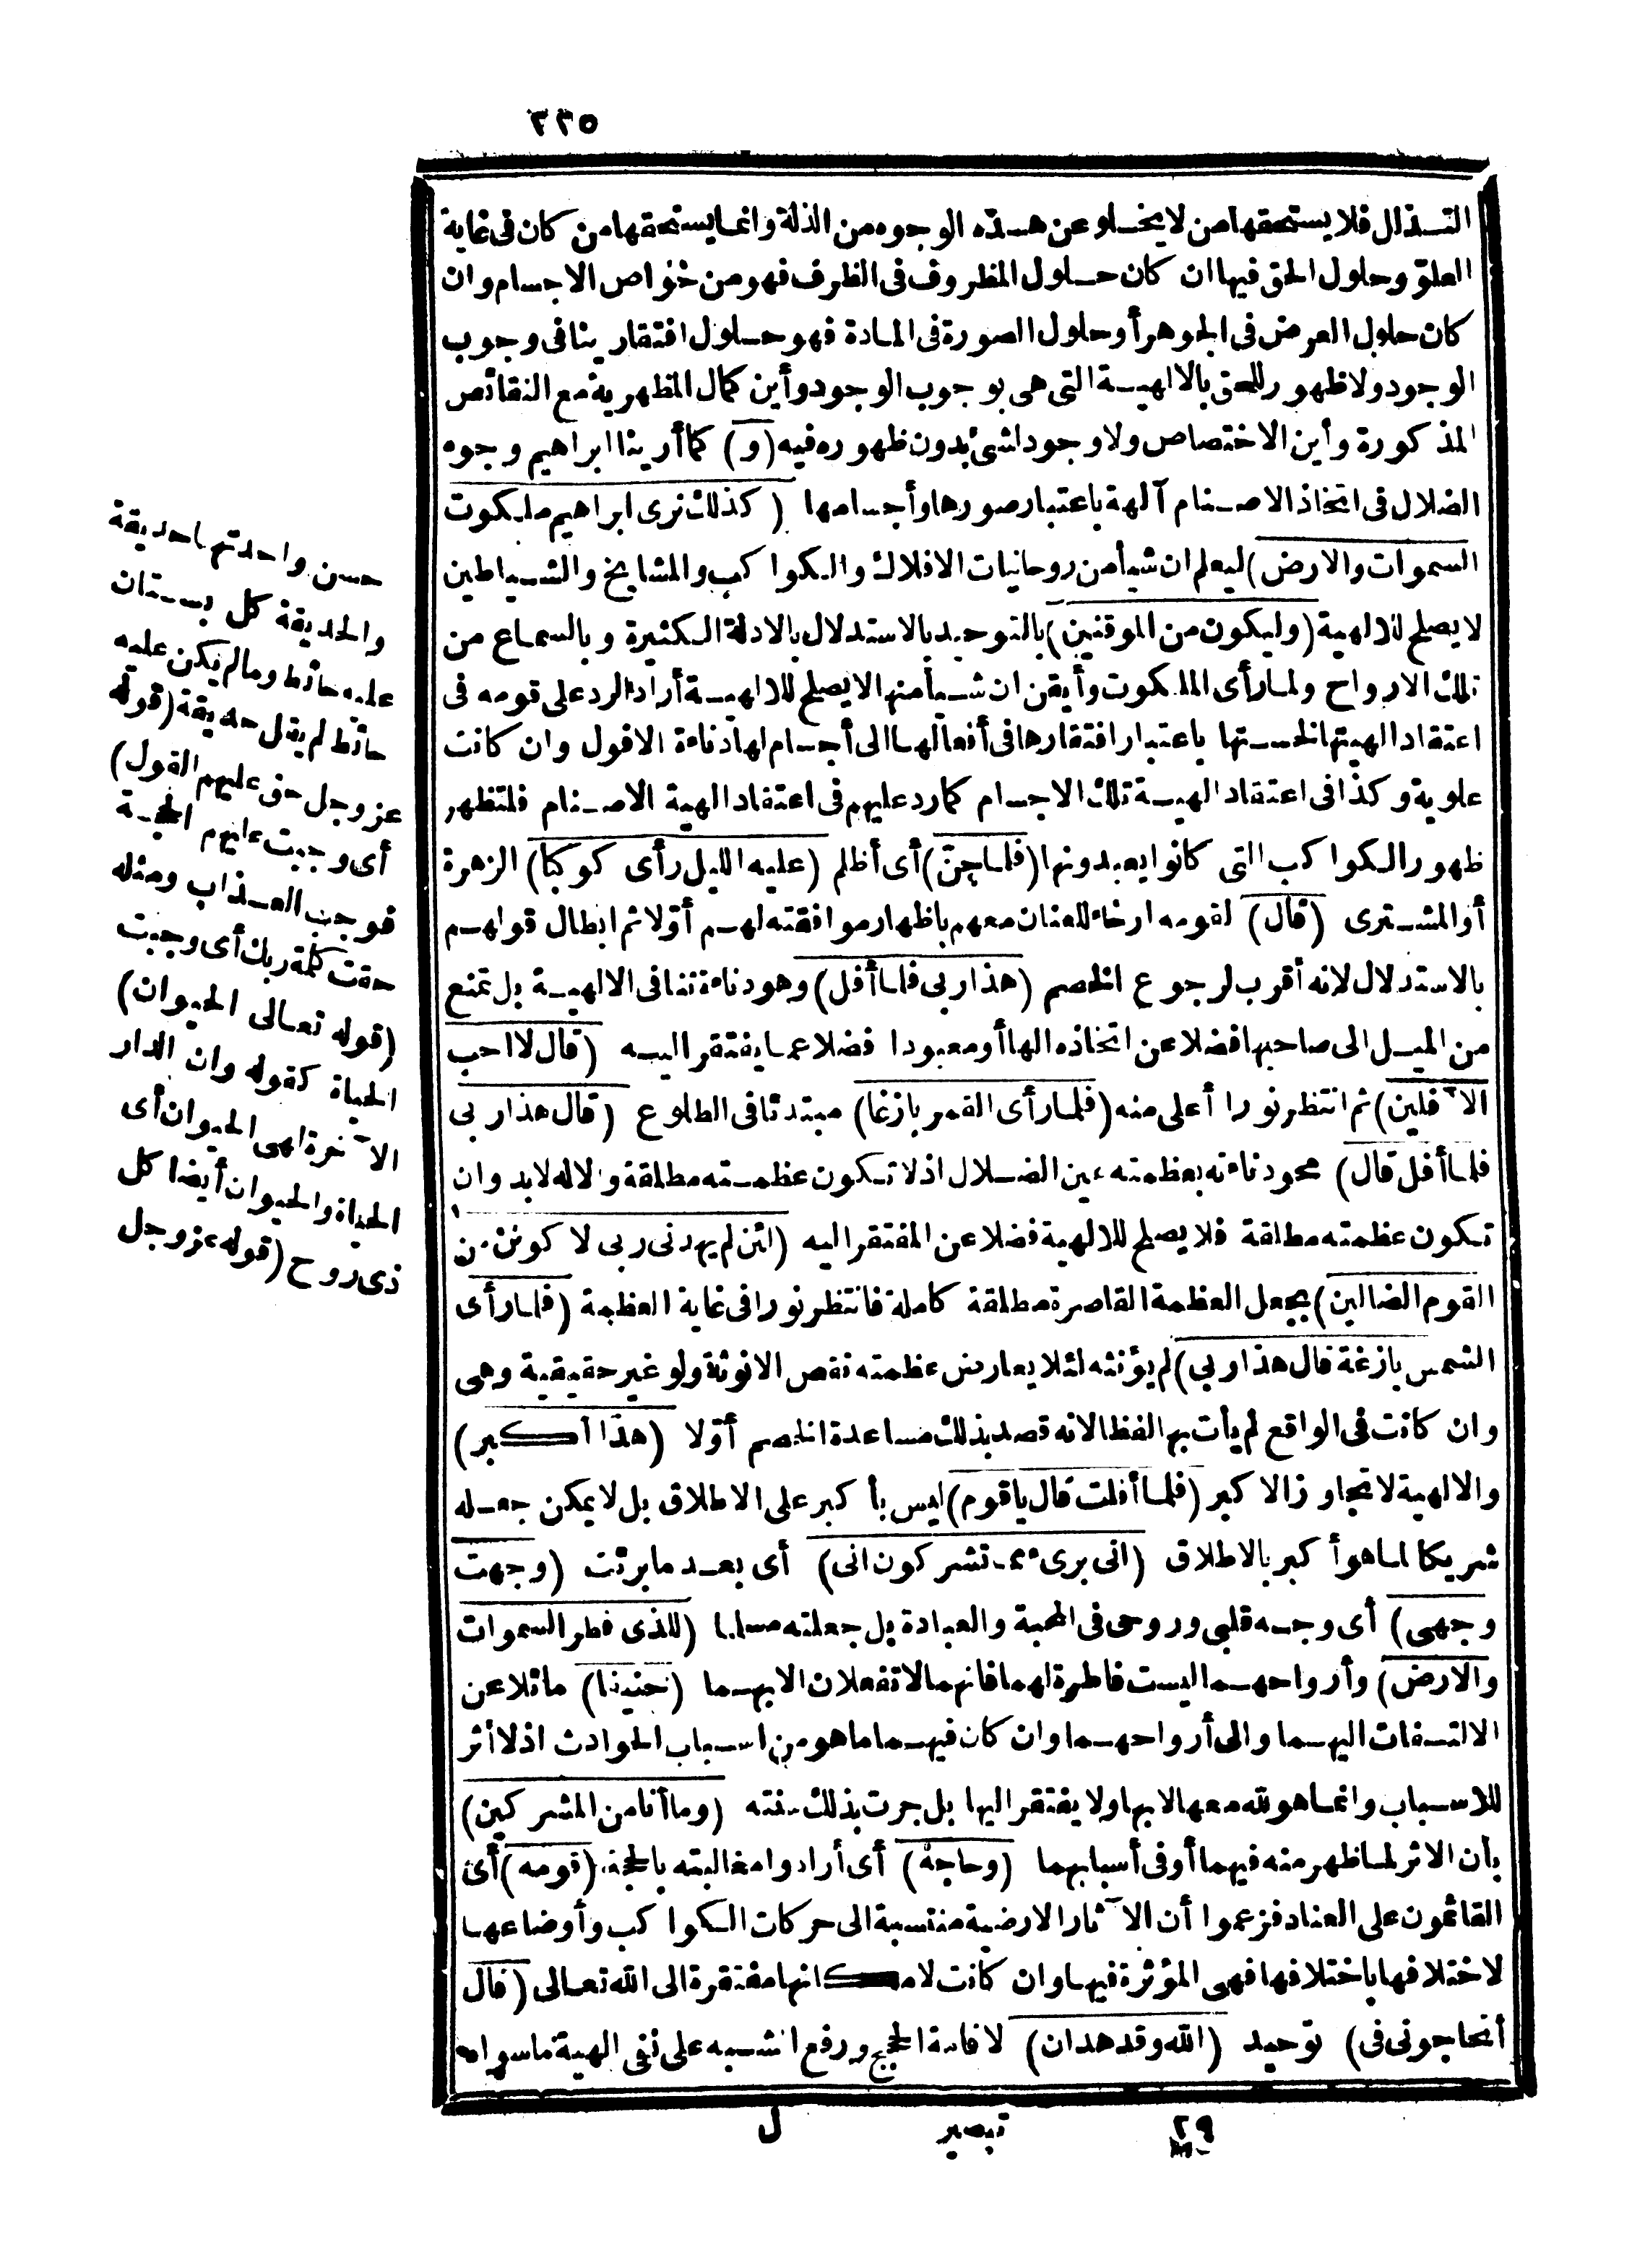 ٢٢٥
التذلل فلا يستحقها من لا يخلو عن هذه الوجوه من الذلة وانما يستحقها من كان فى غاية
العلوّ وحلول الحق فيها ان كان حلول المظروف فى الظرف فهو من خواص الاجسام وان
كان حلول العرض فى الجوهر أو حلول الصورة فى المادة فهو حلول افتقار ينافى وجوب
الوجود ولا ظهور للحق بالالهية التى هى بوجوب الوجود وأين كمال المظهرية مع النقائص
المذكورة وأين الاختصاص ولا وجود لشئ بدون ظهوره فيه (و) كما أرينا ابراهيم وجوه
الضلال فى اتخاذ الاصنام آلهة باعتبار صورها وأجسامها (كذلك نرى ابراهيم ملكوت
السموات والارض) ليعلم ان شيأ من روحانيات الافلاك والكواكب والمشايخ والشياطين
لا يصلح للالهية (وليكون من الموقنين) بالتوحيد بالاستدلال بالادلة الكثيرة وبالسماع من
تلك الارواح ولما رأى الملكوت وأيقن ان شيأ منها لا يصلح للالهية أراد الرد على قومه فى
اعتقاد الهيتها لخستها باعتبار افتقارها فى أفعالها الى أجسام لها دناءة الافول وان كانت
علوية وكذا فى اعتقاد الهية تلك الاجسام كما رد عليهم فى اعتقاد الهية الاصنام فلتظهر
ظهور الكواكب التى كانوا يعبدونها (فلما جنّ) أى أظلم (عليه الليل رأى كوكبا) الزهرة
أو المشترى (قال) لقومه ارخاء للعنان معهم باظهار موافقته لهم أوّلا ثم ابطال قولهم
بالاستدلال لانه أقرب لرجوع الخصم (هذا ربى فلما أفل) وهو دناءة تنافى الالهية بل تمنع
من الميل الى صاحبها فضلا عن اتخاذه الها أو معبودا فضلا عما يفتقر اليه (قال لا احب
الآفلين) ثم انتظر نورا أعلى منه (فلما رأى القمر بازغا) مبتدئا فى الطلوع (قال هذا ربى
فلما أفل قال) محو دناءته بعظمته عين الضلال اذ لا تكون عظمته مطلقة والاله لا بد وان
تكون عظمته مطلقة فلا يصلح للالهية فضلا عن المفتقر اليه (لئن لم يهدنى ربى لا كونن من
القوم الضالين) بجعل العظمة القاصرة مطلقة كاملة فانتظر نورا فى غاية العظمة (فلما رأى
الشمس بازغة قال هذا ربى) لم يؤنثه لئلا يعارض عظمته نقص الانوثة ولو غير حقيقية وهى
وان كانت فى الواقع لم يأت بها لفظا لانه قصد بذلك مساعدة الخصم أوّلا (هذا أكبر)
والالهية لا تجاوز الاكبر (فلما أفلت قال ياقوم) ليس بأكبر على الاطلاق بل لا يمكن جعله
شريكا لما هو أكبر بالاطلاق (انى برىء مما تشركون انى) أى بعد ما برئت (وجهت
وجهى) أى وجه قلبى وروحى فى المحبة والعبادة بل جعلته مسلما (للذى فطر السموات
والارض) وأرواحهما ليست فاطرة لهما فانهما لا تفعلان الا بهما (حنيفا) مائلا عن
الالتفات اليهما والى أرواحهما وان كان فيهما ما هو من اسباب الحوادث اذ لا أثر
للاسباب وانما هو لله معها لا بها ولا يفتقر اليها بل جرت بذلك سنته (وما أنا من المشركين)
بأن الاثر لما ظهر منه فيهما أو فى أسبابهما (وحاجه) أى أرادوا مغالبته بالحجة (قومه) أى
القائمون على العناد فزعموا أن الآثار الارضية منتسبة الى حركات الكواكب وأوضاعها
لاختلافها باختلافها فهى المؤثرة فيها وان كانت لامكانها مفتقرة الى الله تعالى (قال
أتحاجونى فى) توحيد (الله وقد هدان) لافادة الحجج ورفع الشبه على نفى الهية ما سواه
حسن واحدتها حديقة
والحديقة كل بستان
عليه حائط وما لم يكن عليه
حائط لم يقل حديقة (قوله
عز وجل حق عليهم القول)
أى وجبت عليهم الحجة
فوجب العذاب ومثله
حقت كلمة ربك أى وجبت
(قوله تعالى الحيوان)
الحياة كقوله وان الدار
الآخرة لهى الحيوان أى
الحياة والحيوان أيضا كل
ذى روح (قوله عز وجل
٢٩ تبصير ل